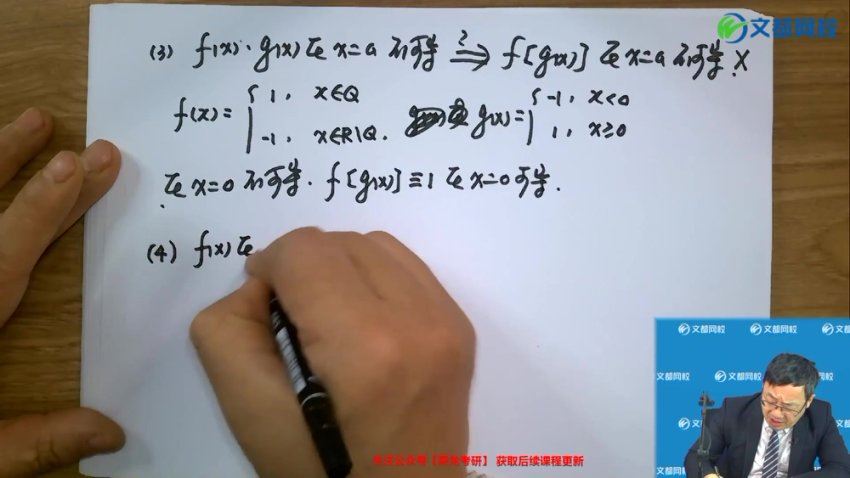 文都网校
(3) f(x)·g(x)在 x=a 不可导 ?⟹ f[g(x)] 在 x=a 不可导. ×
f(x)= { 1, x∈Q
-1, x∈R\Q.
g(x)= { -1, x<0
1, x≥0
在 x=0 不可导. f[g(x)]≡1 在 x=0 可导.
(4) f(x)在
文都网校 文都网校
文都网校 文都网校
文都网校
获取后续课程更新